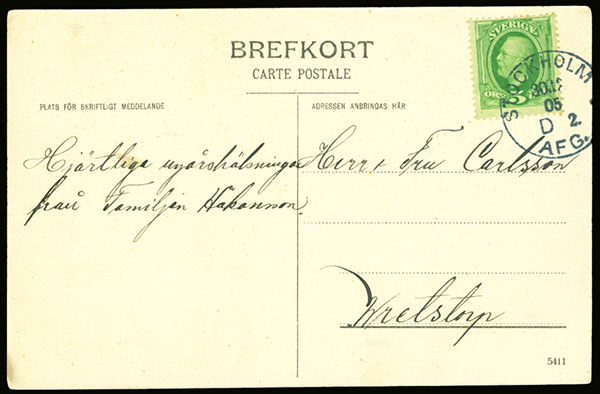 BREFKORT
CARTE POSTALE
SVERIGE
ÖRE 5
STOCKHOLM
30.12
05
D 2.
AFG.
PLATS FÖR SKRIFTLIGT MEDDELANDE
ADRESSEN ANBRINGAS HÄR
Hjärtliga nyårshälsningar
från Familjen Håkansson
Herr & Fru Carlsson
Wretstorp
5411